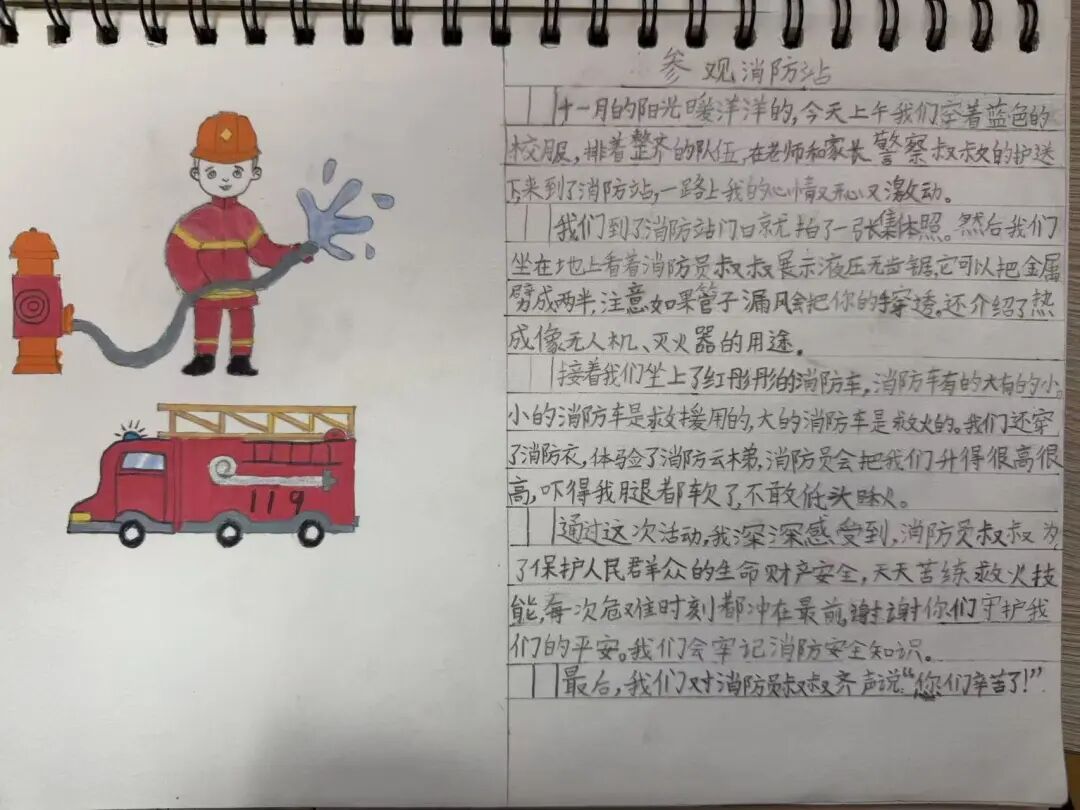 参观消防站
十一月的阳光暖洋洋的,今天上午我们穿着蓝色的
校服,排着整齐的队伍,在老师和家长警察叔叔的护送
下,来到了消防站,一路上我的心情又开心又激动。
我们到了消防站门口就先拍了一张集体照。然后我们
坐在地上看着消防员叔叔展示液压无齿锯,它可以把金属
劈成两半,注意如果管子漏风会把你的手穿透,还介绍了热
成像无人机、灭火器的用途。
接着我们坐上了红彤彤的消防车,消防车有的大有的小。
小的消防车是救援用的,大的消防车是救火的。我们还穿
了消防衣,体验了消防云梯,消防员会把我们升得很高很
高,吓得我腿都软了,不敢低头瞅。
通过这次活动,我深深感受到,消防员叔叔为
了保护人民群众的生命财产安全,天天苦练救火技
能,每次危难时刻都冲在最前,谢谢你们守护我
们的平安。我们会牢记消防安全知识。
最后,我们对消防员叔叔齐声说“你们辛苦了!”
119